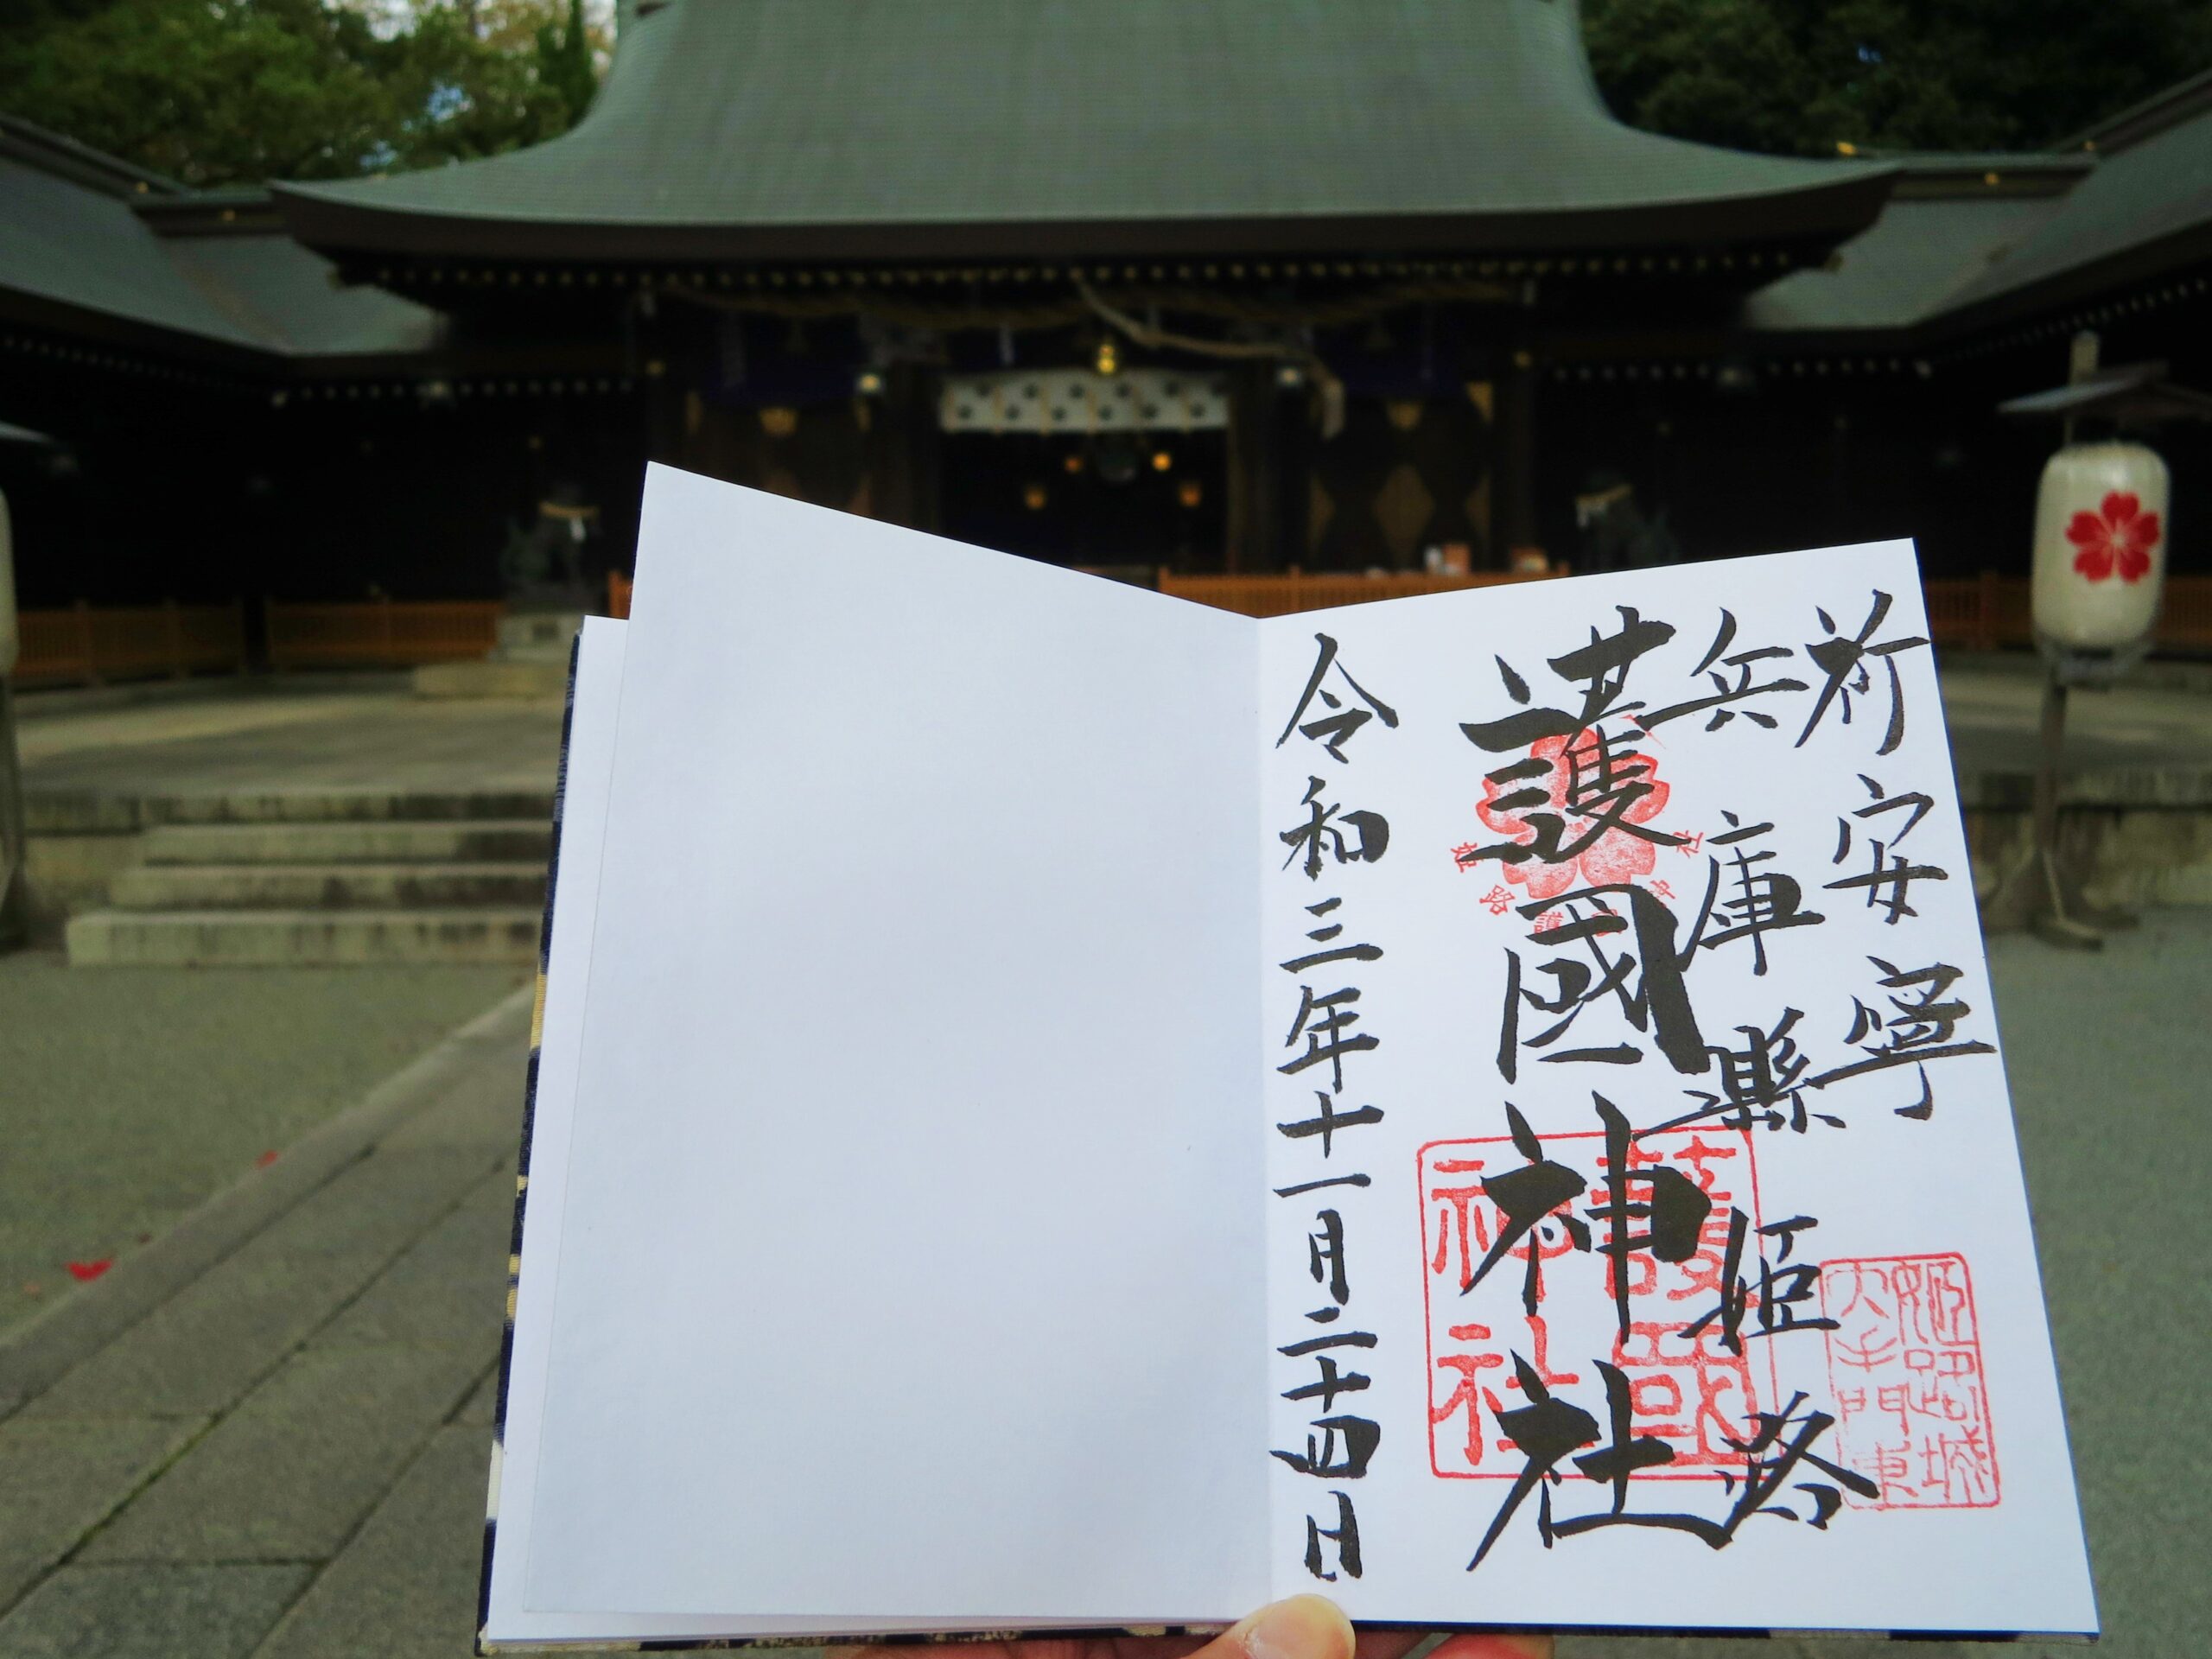 祈安寧
兵庫縣姫路
護國神社
令和三年十一月二十四日
護國
神社
姫路城
大手門東
姫路護
社